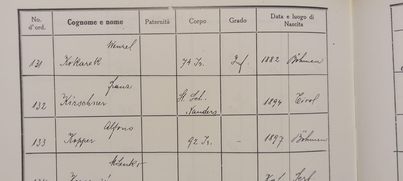 No. d'ord. Cognome e nome Paternità Corpo Grado Data e luogo di Nascita
Wenzel
131 Kokarek 74 Is. Inf. 1882 Böhmen
Franz
132 Kirschner St. Sch. Landers 1894 Tirol
Alfons
133 Kopper 92 Is. - 1897 Böhmen